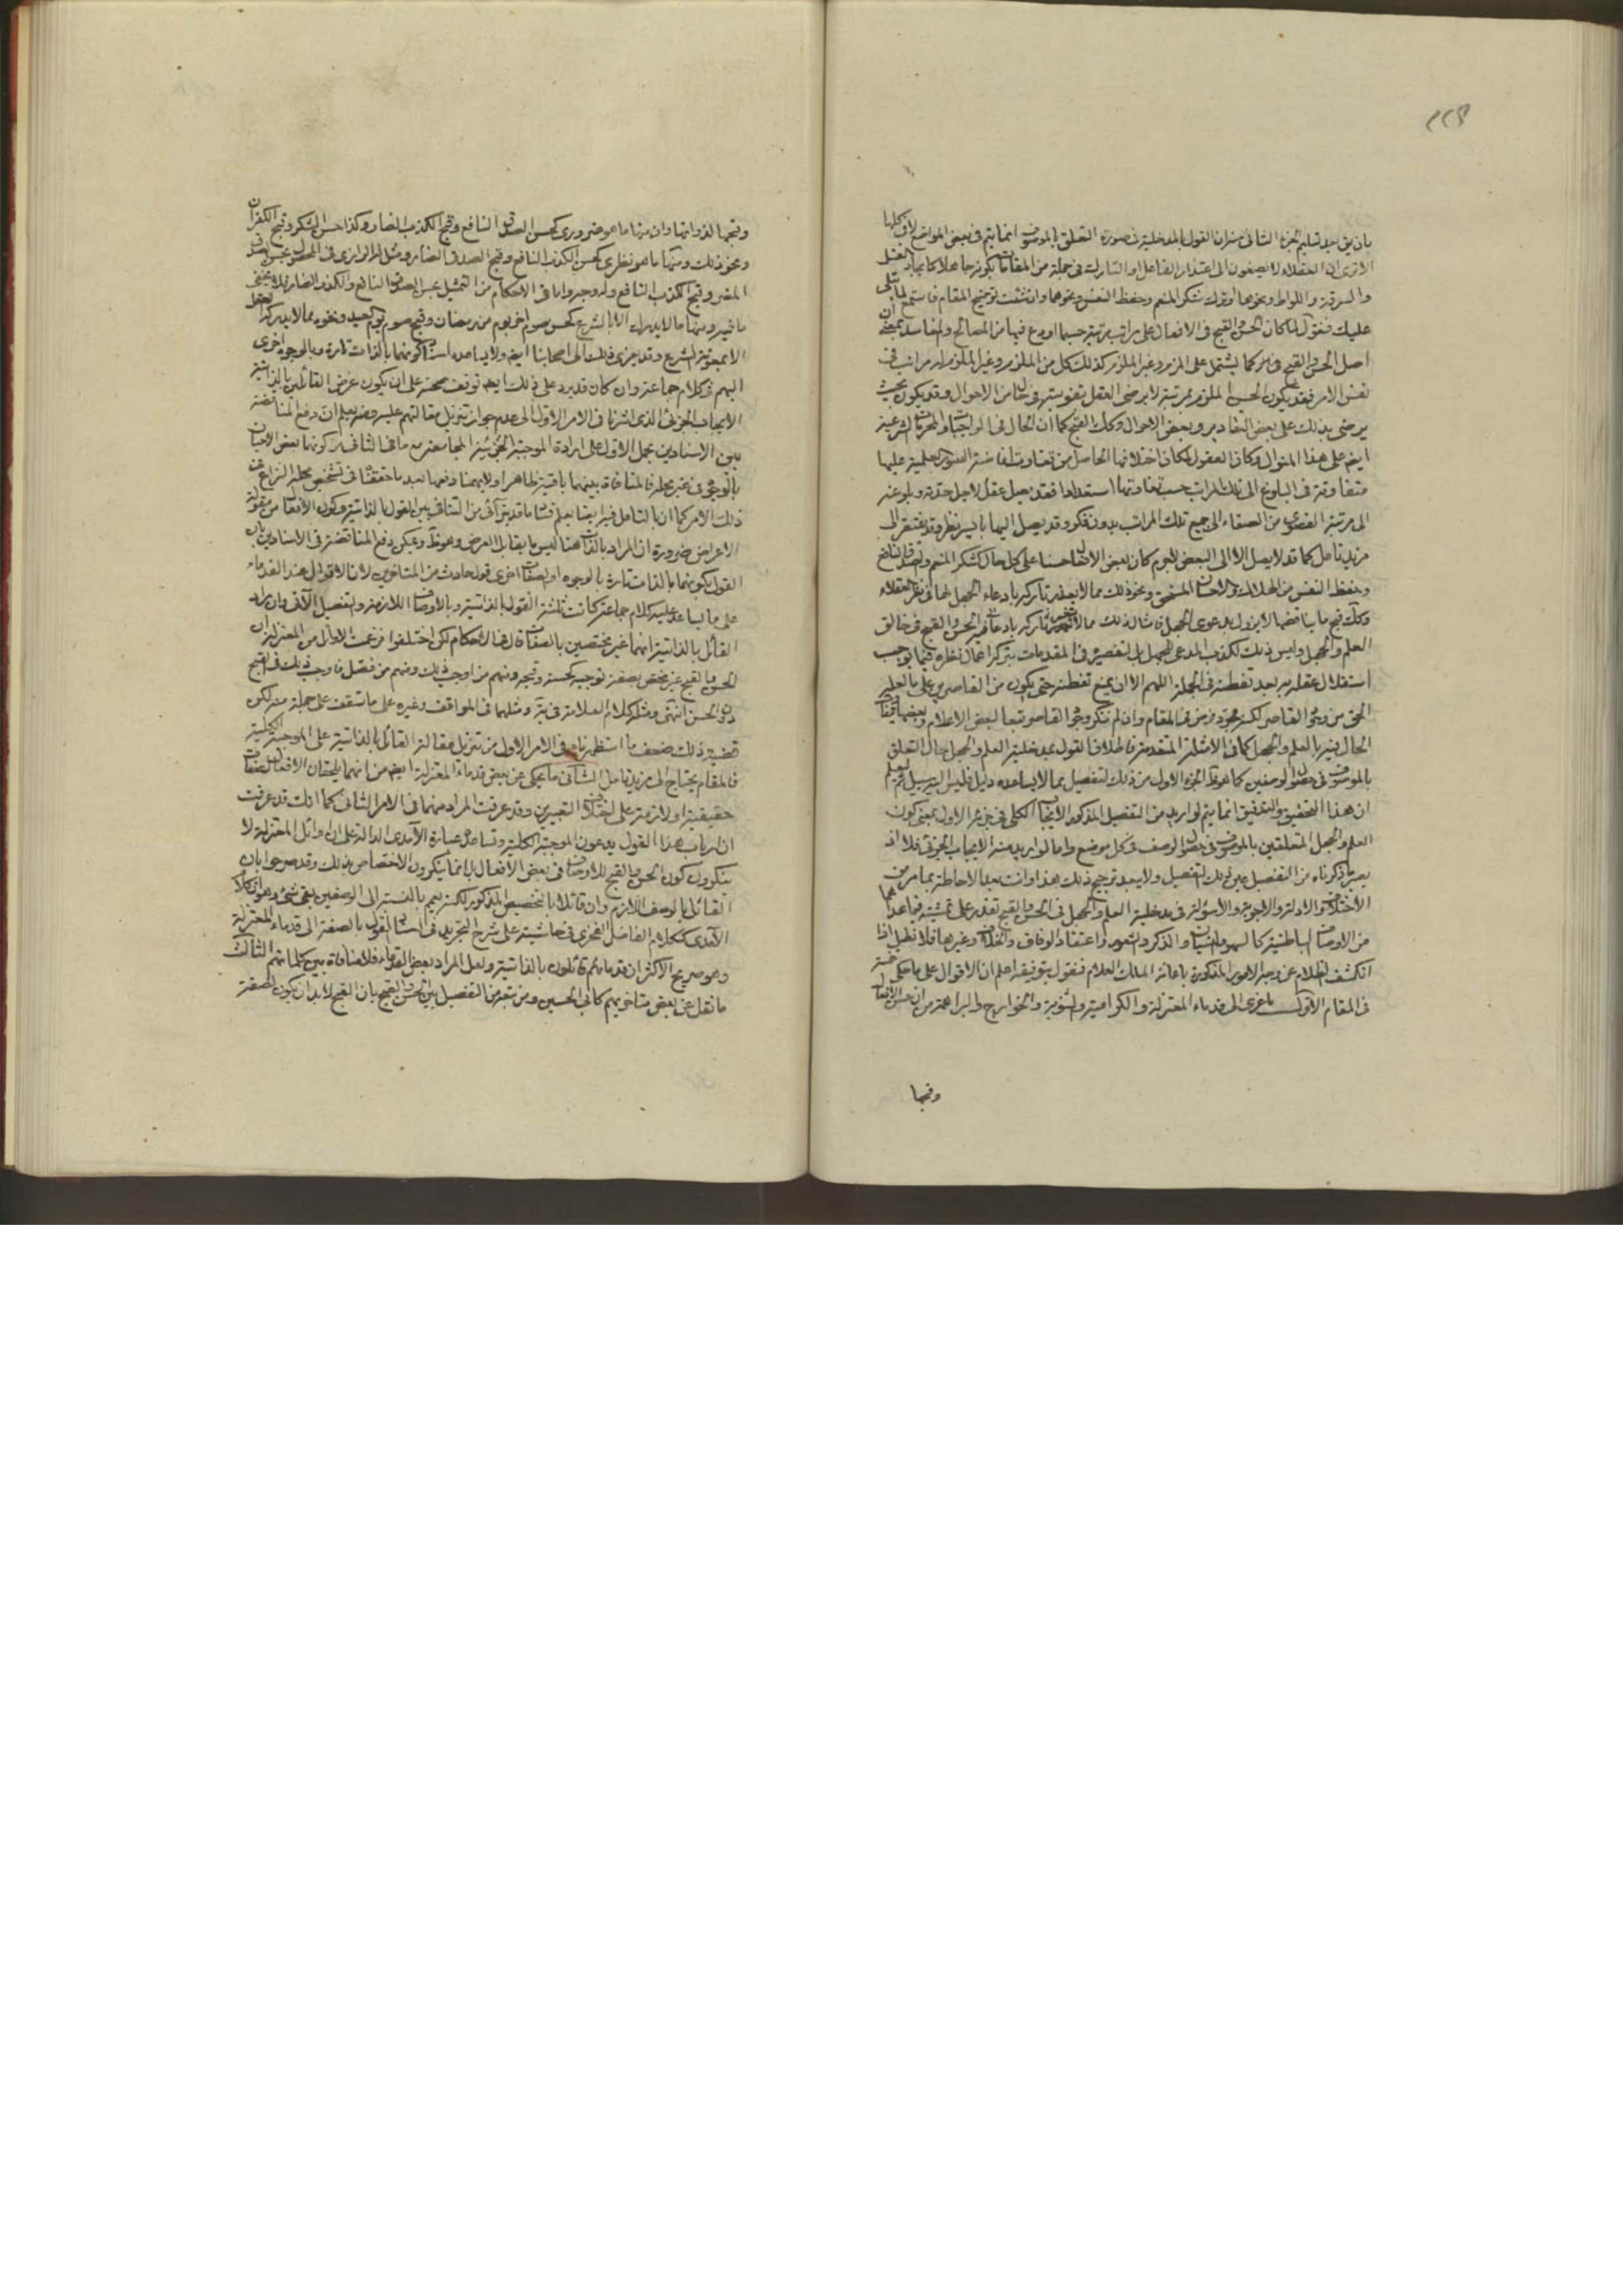 بان يق بعد تسليم الجزء الثاني منه ان القول بالمدخلية في صورة التعلق بالموصوف انما يتم في بعض المواضع لا في كلها
الا ترى ان العقلاء لا يصغون الى اعتذار الفاعل او التارك في جملة من المقامات بكونه جاهلا كما يجاد القتل
والسرقة واللواط ونحوها او ترك شكر المنعم وحفظ النفس ونحوها وان شئت توضيح المقام فاستمع لما يتلى
عليك فنقول لما كان الحسن والقبح في الافعال على مراتب مرتبة حسبما اودع فيها من المصالح والمفاسد بمعنى ان
اصل الحسن والقبح فيها كما يشتمل على الملزم وغير الملزم كذلك كل من الملزم وغير الملزم له مراتب في
نفس الامر فقد يكون الحسن الملزم بمرتبة لا يرضى العقل بتفويتها في حال من الاحوال وقد يكون بحيث
يرضى بذلك على بعض التقادير وبعض الاحوال وكك القبح كما ان الحال في الواجبات والمحرمات الشرعية
ايضا على هذا المنوال وكان العقول لمكان اختلافها الحاصل من تفاوت
متفاوتة في البلوغ الى تلك المراتب حسب تفاوتها استعدادا فقد يصل عقل لاجل حدته وبلوغه
الى مرتبة القصوى من الصفاء الى جميع تلك المراتب بدون فكر وقد يصل اليها بايسر نظر وقد يفتقر الى
مزيد تامل كما قد لا يصل الا الى البعض لاجرم كان بعض الافعال حسنا على كل حال كشكر المنعم والصدق النافع
وحفظ النفس من الهلاك والاحسان المستحق ونحو ذلك مما لا يعذر تاركه بادعاء الجهل بها في نظر العقلاء
وكك قبح ما يناقضها لا يزول بدعوى الجهل فامثال ذلك مما لا تاركه بادعاء الحسن والقبح في خالق
العلم والجهل وليس ذلك لكذب المدعي للجهل بل لتقصيره في المقدمات بتركه اعمال نظره فيما يوجب
استقلال عقله به بعد تفطنه في الجملة اللهم الا ان يمنع تفطنه حتى يكون من القاصرين على ما عليه
المحق من وجود القاصر لكنه مجرد فرض في المقام وان لم ننكر وجود القاصر تبعا لبعض الاعلام وبعضها
الحال فيه بالعلم والجهل كما في الامثلة المتقدمة فاطلاق القول بمدخلية العلم والجهل حال التعلق
بالموصوف في حصول الوصفين كما هو ظ الجزء الاول من ذلك التفصيل مما لا يساعده دليل فليس اليه سبيل ثم اعلم
ان هذا التحقيق والتدقيق انما يتم لو اريد من التفصيل المذكور الايجاب الكلي في جزئه الاول بمعنى كون
العلم والجهل المتعلقين بالموصوف في حصول الوصف في كل موضع واما لو اريد منه الايجاب الجزئي فلا اذ
يصير ما ذكرناه من التفصيل عين ذلك التفصيل ولا يبعد ترجيح ذلك هذا وانت بعد الاحاطة بما مر من
الاختلاف والادلة والاجوبة والاسؤلة في مدخلية العلم والجهل في الحسن والقبح تقدر على تمشيته فيما عداهما
من الاوصاف الباطنية كالسهو والنسيان والذكر والشعور واعتقاد الوفاق والخلاف وغيرها فلا نطيل اذا
انكشف الظلام عن وجه الامور المذكورة باعانة الملك العلام فنقول بتوفيقه اعلم ان الاقوال على ما حكي خمسة
في المقام الاول ما عزي الى قدماء المعتزلة والكرامية والثنوية والخوارج والبراهمة من ان حسن الافعال
وقبحها
وقبحها لذواتها وان منها ما هو ضروري كحسن الصدق النافع وقبح الكذب الضار وكذا حسن الشكر وقبح الكفران
ونحو ذلك ومنها ما هو نظري كحسن الكذب النافع وقبح الصدق الضار ومثل الرازي في المحصول بحسن الصدق
المضر وقبح الكذب النافع وله وجه واما في الاحكام من التمثيل بحسن الصدق النافع والكذب الضار فلا يخفى
ما فيه ومنها ما لا يدرك الا بالشرع كحسن صوم اخر يوم من رمضان وقبح صوم يوم العيد ونحوه مما لا يدركه العقل
الا بمعونة الشرع وقد يعزى ذلك الى اصحابنا ايضا ولا يساعده اسناد كونهما بالذات تارة وبالوجوه اخرى
اليهم في كلام جماعة وان كان قد يرد على ذلك ايضا توقف صحته على ان يكون غرض القائلين بالذاتية
الايجاب الجزئي الذي اشرنا في الامر الاول الى عدم جواز تنزيل مقالتهم عليه ومنه يعلم ان دفع المناقضة
بين الاسنادين بحمل الاول على ارادة الموجبة الجزئية المجامعة مع ما في الثاني من كونهما بعض الاحيان
بالوجوه في غير محله فالمنافاة بينهما باقية ظاهرا ولا يهمنا دفعها بعد ما حققنا في تشخيص محل النزاع عن
ذلك الامر كما ان بالتامل فيه ايضا يعلم فساد ما قد يترائى من التنافي بين القول بالذاتية وكون الافعال من مقولة
الاعراض ضرورة ان المراد بالذات هنا ليس ما يقابل العرض وهو ظ ويمكن دفع المناقضة في الاسنادين بان
القول بكونهما بالذات تارة وبالوجوه او بالصفات اخرى قول حادث من المتاخرين لان الاقوال عند القدماء
على ما يساعد عليه كلام جماعة كانت ثلثة القول بالذاتية وبالاوصاف اللازمة والتفصيل الآتي وان مراد
القائل بالذاتية انهما غير مختصين بالصفات قال في الاحكام لكن اختلفوا فزعمت الاوائل من المعتزلة ان
الحسن والقبح غير مختص بصفة توجب كحسنه وقبحه ومنهم من اوجب ذلك ومنهم من فصل فاوجب ذلك في القبح
دون الحسن انتهى ومثله كلام العلامة في يه ومثلهما في المواقف وغيره على ما ستقف على جملة منه لكن
قضية ذلك ضعف ما استظهرناه في الامر الاول من تنزيل مقالة القائل بالذاتية على الموجبة الكلية
فالمقام يحتاج الى مزيد تامل الثاني ما يحكى عن بعض قدماء المعتزلة ايضا من انهما يلحقان الافعال لصفات
حقيقية او لازمة على اختلاف التعبيرين وقد عرفت المراد منهما في الامر الثاني كما انك قد عرفت
ان ارباب هذا القول يدعون الموجبة الكلية وتساعده عبارة الآمدي الدالة على ان اوائل المعتزلة لا
ينكرون كون الحسن والقبح للاوصاف في بعض الافعال بل انما ينكرون الاختصاص بذلك وقد صرحوا بان
القائل بالوصف اللازم وان قائلا بالتخصيص المذكور لكنه يعم بالنسبة الى الوصفين بقي شئ وهو ان كلام
الآمدي ككلام الفاضل الفخري في حاشيته على شرح التجريد في اسناد القول بالصفة الى قدماء المعتزلة
وهو صريح الاكثر ان قدمائهم قائلون بالذاتية ولعل المراد بعض القدماء فلا منافاة بين كلماتهم الثالث
ما نقل عن بعض متاخريهم كابي الحسين ومن تبعه من التفصيل بين الحسن والقبح بان القبح لا بد ان يكون لصفة